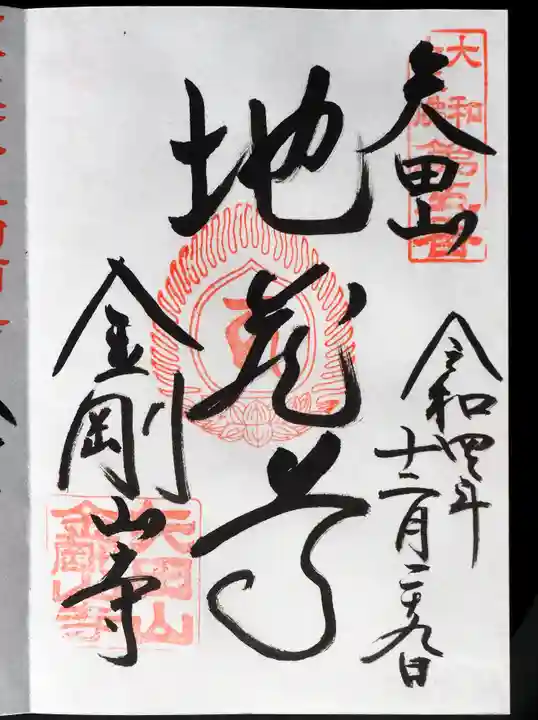 矢田山
令和四年
十二月二十九日
地蔵尊
金剛山寺
大和
矢田山
金剛山寺